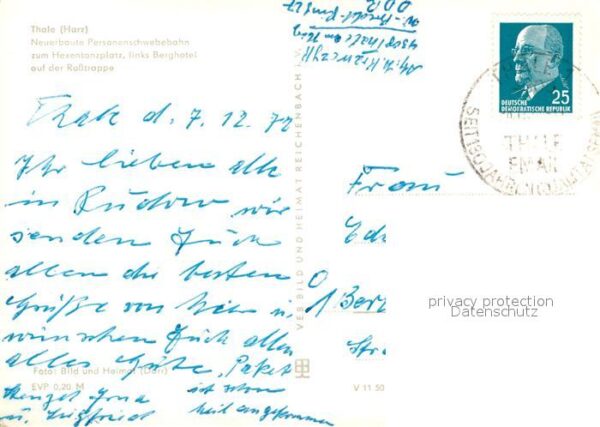 Thale (Harz)
Neuerbaute Personenschwebebahn
zum Hexentanzplatz, links Berghotel
auf der Roßtrappe
Thale d. 7. 12. 72
Ihr lieben alle
in Rudow wir
senden Euch
allen die besten
Grüße von hier u.
wünschen Euch allen
alles Gute, Paket
ist schon
heil angekommen
u. Siegfried
Foto: Bild und Heimat
EVP 0,20 M
VEB BILD UND HEIMAT REICHENBACH I. V.
V 11 50
DDR
DEUTSCHE
DEMOKRATISCHE REPUBLIK
25
THALE
Frau
Str
privacy protection
Datenschutz